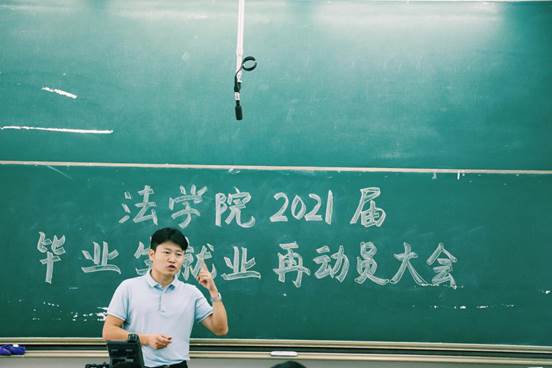 法学院2021届
毕业生就业再动员大会